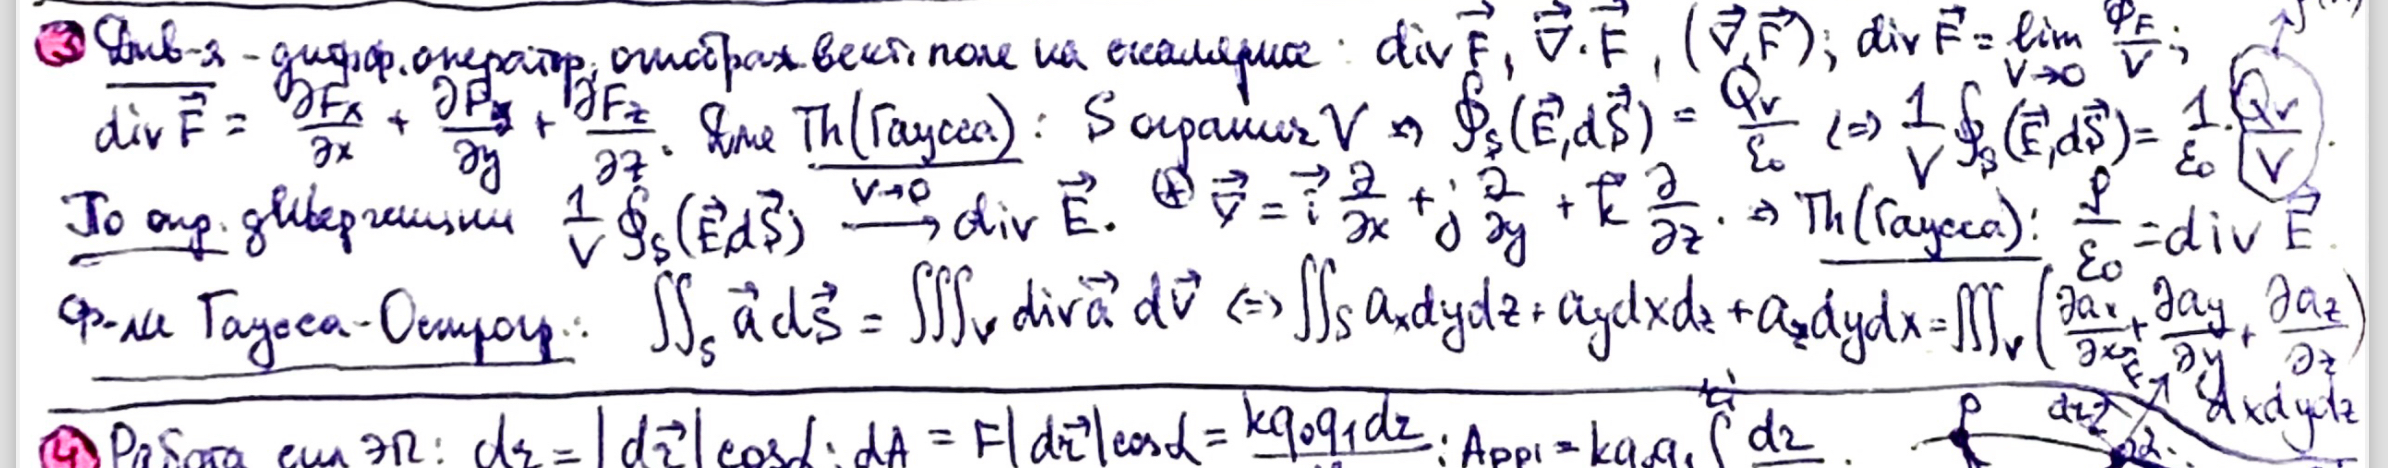 ③ Див-я - дифф. оператор, отображ. вект. поле на скалярное: div F⃗, ∇⃗·F⃗, (∇⃗,F⃗); div F⃗ = lim_{V→0} Φ_F/V;
div F⃗ = ∂Fx/∂x + ∂Fy/∂y + ∂Fz/∂z. Th(Гаусса): S огранич V ⇒ ∮_S(E⃗,dS⃗) = Q_V/ε₀ ⟺ 1/V ∮_S(E⃗,dS⃗) = 1/ε₀ · Q_V/V.
По опр. дивергенции 1/V ∮_S(E⃗,dS⃗) —V→0→ div E⃗. ⊛ ∇⃗ = i⃗ ∂/∂x + j ∂/∂y + k⃗ ∂/∂z. ⇒ Th(Гаусса): ρ/ε₀ = div E⃗.
Ф-ла Гаусса-Острогр.: ∬_S a⃗ dS⃗ = ∭_V div a⃗ dV⃗ ⟺ ∬_S axdydz + aydxdz + azdydx = ∭_V (∂ax/∂x + ∂ay/∂y + ∂az/∂z)
dxdydz
④ Работа сил ЭП: dr = |dr⃗| cosα; dA = F|dr⃗|cosα = kq₀q₁dr